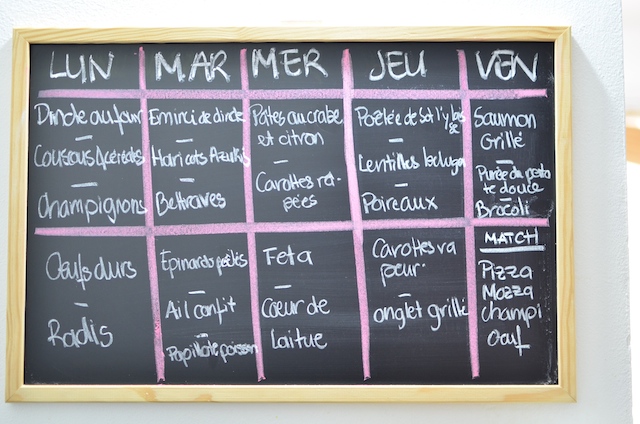 LUN MAR MER JEU VEN
Dinde au four
Couscous 4 céréales
Champignons
Eminci de dinde
Haricots Azukis
Bettraves
Pâtes au crabe
et citron
Carottes ra-
pées
Poêlée de Sot l'y laisse
Lentilles beluga
Poireaux
Saumon
Grillé
Purée de pata
te douce
Brocoli
Oeufs durs
Radis
Epinards poêlés
Ail confit
Papillote poisson
Feta
Coeur de
Laitue
Carottes va
peur.
onglet grillé
MATCH
Pizza
Mozza
champi
Oeuf